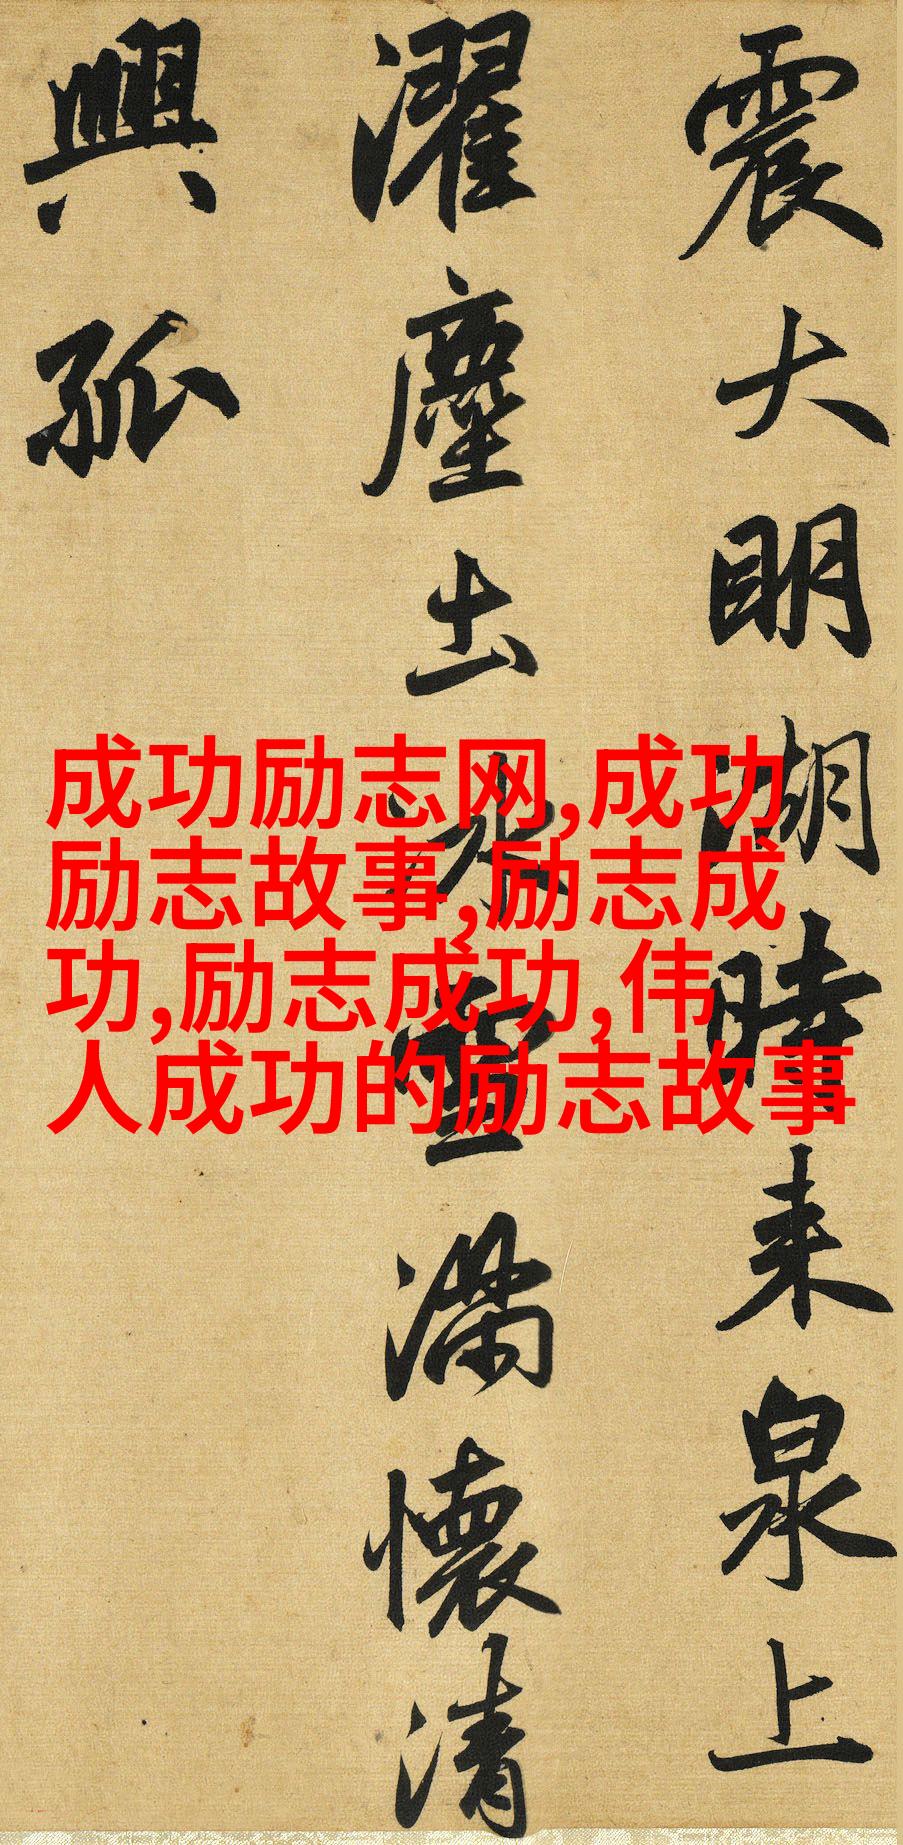 震大明湖時来泉上
濯塵出冰雪滿懷清
興孤
成功励志网,成功
励志故事,励志成
功,励志成功,伟
人成功的励志故事